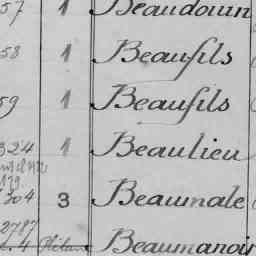 57 1 Beaudouin
58 1 Beaufils
59 1 Beaufils
324 1 Beaulieu
304 3 Beaumale
2787
4 Beaumanoir